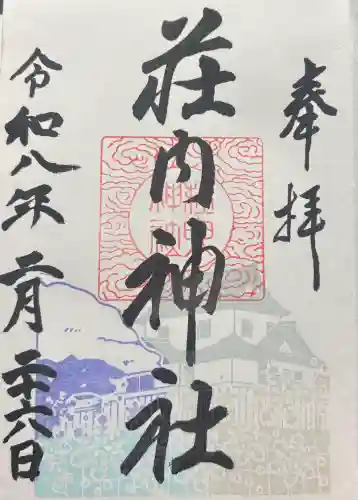 奉拝
荘内神社
令和八年二月二十六日